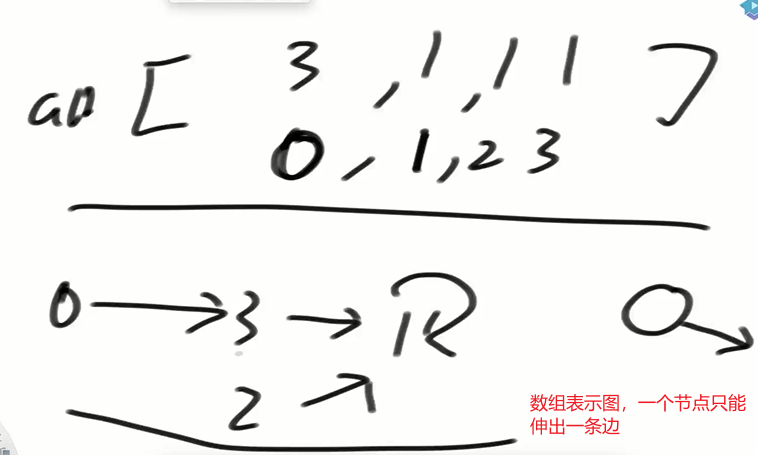 [ 3 , 1 , 1 1 ]
0 , 1 , 2 3
0 → 3 →
2 ↗ 1
数组表示图，一个节点只能
伸出一条边